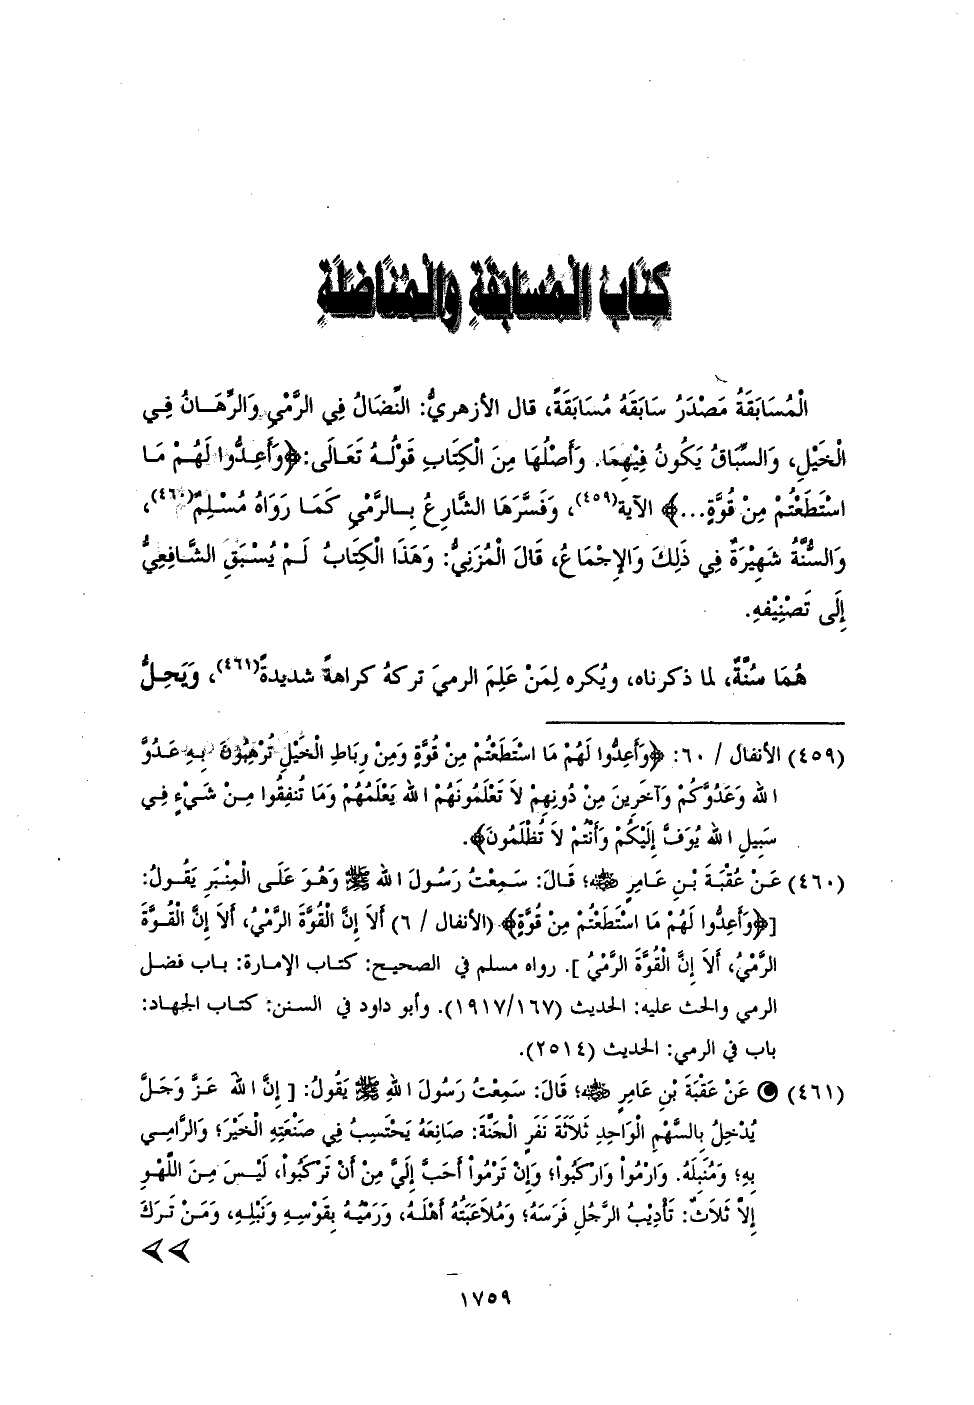 كِتَابُ الْمُسَابَقَةِ وَالْمُنَاضَلَةِ
الْمُسَابَقَةُ مَصْدَرُ سَابَقَهُ مُسَابَقَةً، قال الأزهريُّ: النِّضَالُ فِي الرَّمْيِ وَالرِّهَانُ فِي
الْخَيْلِ، وَالسِّبَاقُ يَكُونُ فِيْهِمَا. وَأَصْلُهَا مِنَ الْكِتَابِ قَوْلُهُ تَعَالَى: ﴿وَأَعِدُّوا لَهُمْ مَا
اسْتَطَعْتُمْ مِنْ قُوَّةٍ...﴾ الآية(٤٥٩)، وَفَسَّرَهَا الشَّارِعُ بِالرَّمْيِ كَمَا رَوَاهُ مُسْلِمٌ(٤٦٠)،
وَالسُّنَّةُ شَهِيْرَةٌ فِي ذَلِكَ وَالإِجْمَاعُ، قَالَ الْمُزَنِيُّ: وَهَذَا الْكِتَابُ لَمْ يُسْبَقِ الشَّافِعِيُّ
إِلَى تَصْنِيْفِهِ.
هُمَا سُنَّةٌ، لما ذكرناه، ويُكره لِمَنْ عَلِمَ الرميَ تركهُ كراهةً شديدةً(٤٦١)، وَيَحِلُّ
(٤٥٩) الأنفال / ٦٠: ﴿وَأَعِدُّوا لَهُمْ مَا اسْتَطَعْتُمْ مِنْ قُوَّةٍ وَمِنْ رِبَاطِ الْخَيْلِ تُرْهِبُونَ بِهِ عَدُوَّ
الله وَعَدُوَّكُمْ وَآخَرِينَ مِنْ دُونِهِمْ لاَ تَعْلَمُونَهُمْ الله يَعْلَمُهُمْ وَمَا تُنفِقُوا مِنْ شَيْءٍ فِي
سَبِيلِ الله يُوَفَّ إِلَيْكُمْ وَأَنْتُمْ لاَ تُظْلَمُونَ﴾.
(٤٦٠) عَنْ عُقْبَةَ بْنِ عَامِرٍ ؓ؛ قَالَ: سَمِعْتُ رَسُولَ الله ﷺ وَهُوَ عَلَى الْمِنْبَرِ يَقُولُ:
[﴿وَأَعِدُّوا لَهُمْ مَا اسْتَطَعْتُمْ مِنْ قُوَّةٍ﴾ (الأنفال / ٦) أَلاَ إِنَّ الْقُوَّةَ الرَّمْيُ، أَلاَ إِنَّ الْقُوَّةَ
الرَّمْيُ، أَلاَ إِنَّ الْقُوَّةَ الرَّمْيُ]. رواه مسلم في الصحيح: كتاب الإمارة: باب فضل
الرمي والحث عليه: الحديث (١٩١٧/١٦٧). وأبو داود في السنن: كتاب الجهاد:
باب في الرمي: الحديث (٢٥١٤).
(٤٦١) عَنْ عُقْبَةَ بْنِ عَامِرٍ ؓ؛ قَالَ: سَمِعْتُ رَسُولَ اللهِ ﷺ يَقُولُ: [إِنَّ اللهَ عَزَّ وَجَلَّ
يُدْخِلُ بِالسَّهْمِ الْوَاحِدِ ثَلاَثَةَ نَفَرٍ الْجَنَّةَ: صَانِعَهُ يَحْتَسِبُ فِي صَنْعَتِهِ الْخَيْرَ؛ وَالرَّامِي
بِهِ؛ وَمُنَبِّلَهُ. وَارْمُواْ وَارْكَبُواْ؛ وَإِنْ تَرْمُواْ أَحَبَّ إِلَيَّ مِنْ أَنْ تَرْكَبُواْ، لَيْسَ مِنَ اللَّهْوِ
إِلاَّ ثَلاَثٌ: تَأْدِيْبُ الرَّجُلِ فَرَسَهُ؛ وَمُلاَعَبَتُهُ أَهْلَهُ، وَرَمْيُهُ بِقَوْسِهِ وَنَبْلِهِ، وَمَنْ تَرَكَ
١٧٥٩